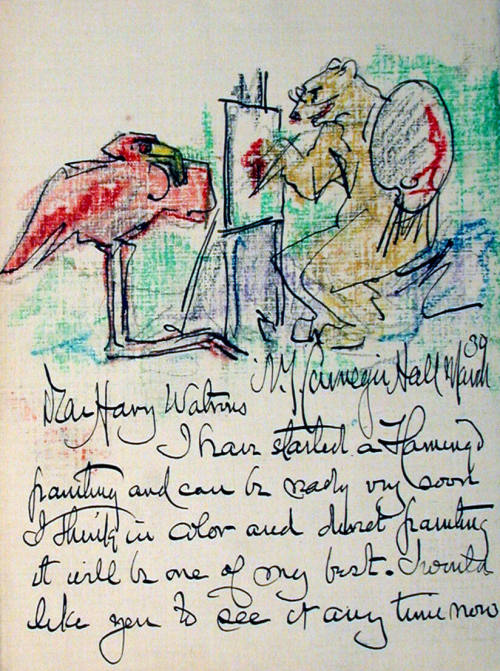 39
N.Y. Carnegie Hall March
Dear Harry Watrous
I have started a Flamingo
painting and can be ready very soon
I think in color and direct painting
it will be one of my best. I would
like you to see it any time now